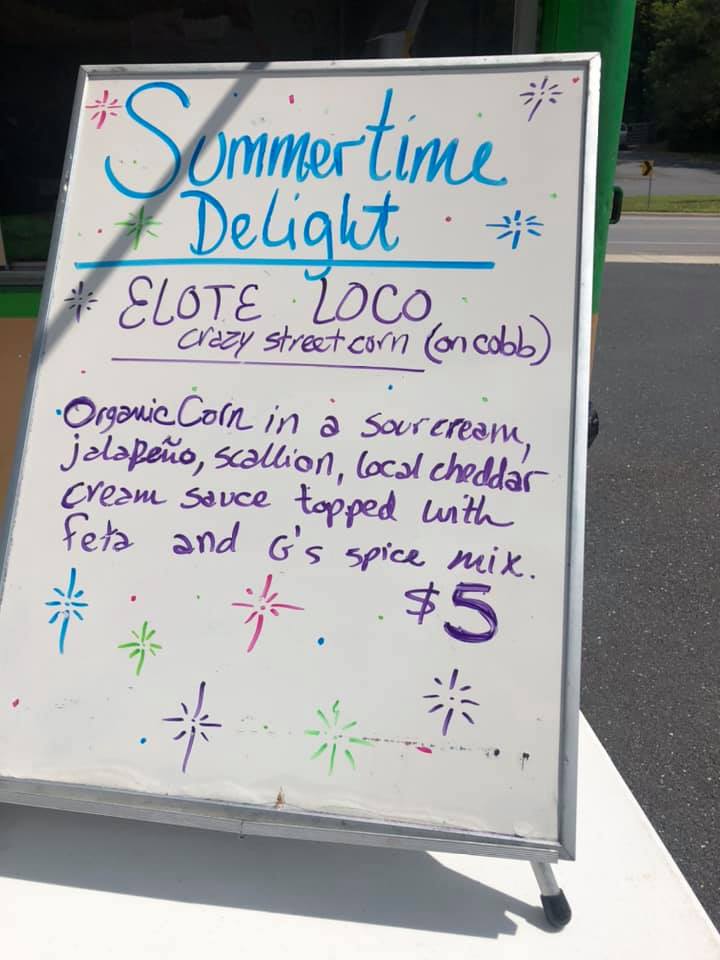 Summertime
Delight
ELOTE LOCO
crazy street corn (on cobb)
Organic Corn in a sour cream,
jalapeño, scallion, local cheddar
cream sauce topped with
feta and G's spice mix.
$5